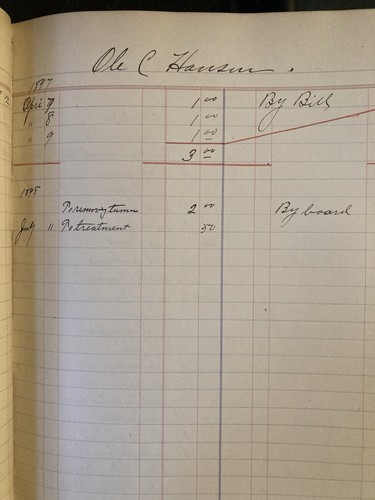 Ole C Hansen.
1897
April 7 1 00 By Bill
" 8 1 00
" 9 1 00
3 00
1898
To removing tumor 2 00 By board
July " To treatment 50